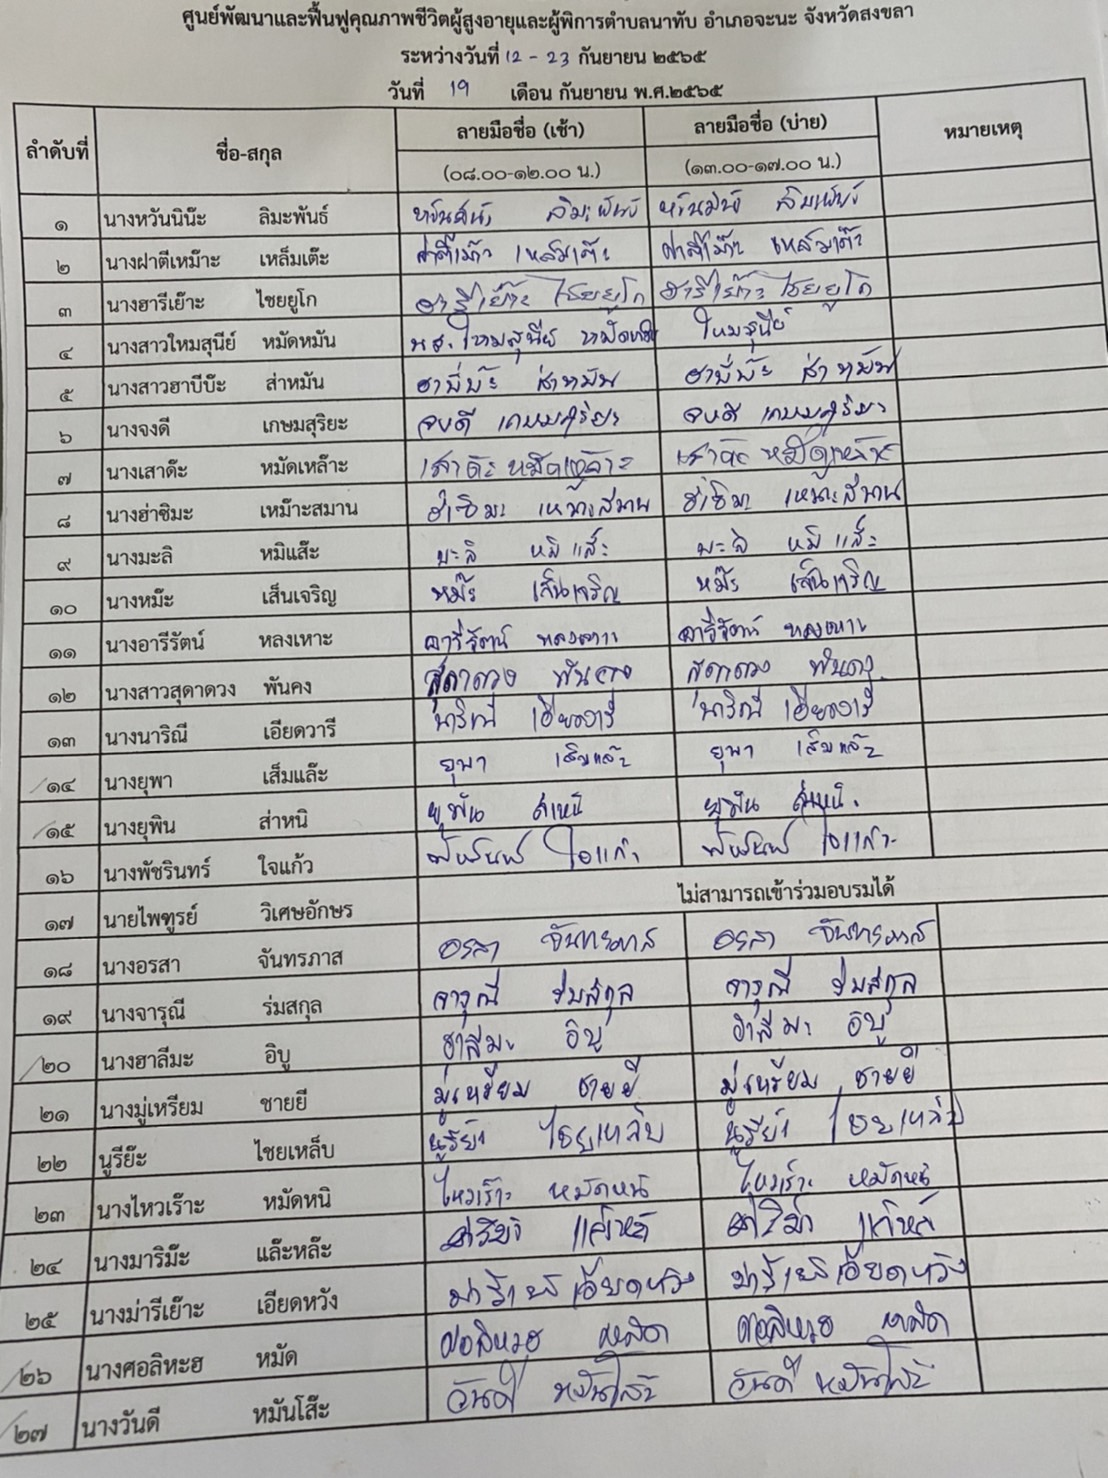 ศูนย์พัฒนาและฟื้นฟูคุณภาพชีวิตผู้สูงอายุและผู้พิการตำบลนาทับ อำเภอจะนะ จังหวัดสงขลา
ระหว่างวันที่ 12 - 23 กันยายน ๒๕๖๕
วันที่ 19 เดือน กันยายน พ.ศ.๒๕๖๕
ลำดับที่ ชื่อ-สกุล ลายมือชื่อ (เช้า) ลายมือชื่อ (บ่าย) หมายเหตุ
(๐๘.๐๐-๑๒.๐๐ น.) (๑๓.๐๐-๑๗.๐๐ น.)
๑ นางหวันนิน๊ะ ลิมะพันธ์
๒ นางฝาตีเหม๊าะ เหล็มเต๊ะ ฝาตีเม๊าะ เหล็มเต๊ะ ฝาตีเม๊าะ เหล็มเต๊ะ
๓ นางฮารีเย๊าะ ไชยยูโก ฮารีเย๊าะ ไชยยูโก ฮารีเย๊าะ ไชยยูโก
๔ นางสาวใหมสุนีย์ หมัดหมัน น.ส.ใหมสุนีย์ หมัดหมัน ใหมสุนีย์
๕ นางสาวฮาบีบ๊ะ สำหมัน ฮาบีบ๊ะ สำหมัน ฮาบีบ๊ะ สำหมัน
๖ นางจงดี เกษมสุริยะ จงดี เกษมสุริยะ จงดี เกษมสุริยะ
๗ นางเสาด๊ะ หมัดเหล๊าะ เสาด๊ะ หมัดเหล๊าะ เสาด๊ะ หมัดเหล๊าะ
๘ นางฮ่าซิมะ เหม๊าะสมาน ฮ่าซิมะ เหม๊าะสมาน ฮ่าซิมะ เหม๊าะสมาน
๙ นางมะลิ หมิแส๊ะ มะลิ หมิแส๊ะ มะลิ หมิแส๊ะ
๑๐ นางหม๊ะ เส็นเจริญ หม๊ะ เส็นเจริญ หม๊ะ เส็นเจริญ
๑๑ นางอารีรัตน์ หลงเหาะ อารีรัตน์ อารีรัตน์
๑๒ นางสาวสุดาดวง พันคง สุดาดวง พันคง สุดาดวง พันคง
๑๓ นางนาริณี เอียดวารี นาริณี เอียดวารี นาริณี เอียดวารี
๑๔ นางยุพา เส็มแล๊ะ ยุพา เส็มแล๊ะ ยุพา เส็มแล๊ะ
๑๕ นางยุพิน สำหนิ ยุพิน สำหนิ ยุพิน สำหนิ
๑๖ นางพัชรินทร์ ใจแก้ว
๑๗ นายไพฑูรย์ วิเศษอักษร ไม่สามารถเข้าร่วมอบรมได้
๑๘ นางอรสา จันทรภาส อรสา จันทรภาส อรสา จันทรภาส
๑๙ นางจารุณี ร่มสกุล จารุณี ร่มสกุล จารุณี ร่มสกุล
๒๐ นางฮาลีมะ อิบู ฮาลีมะ อิบู ฮาลีมะ อิบู
๒๑ นางมู่เหรียม ชายยี มู่เหรียม ชายยี มู่เหรียม ชายยี
๒๒ นูรีย๊ะ ไชยเหล็บ นูรีย๊ะ ไชยเหล็บ นูรีย๊ะ ไชยเหล็บ
๒๓ นางไหวเร๊าะ หมัดหนิ ไหวเร๊าะ หมัดหนิ ไหวเร๊าะ หมัดหนิ
๒๔ นางมาริม๊ะ แล๊ะหล๊ะ
๒๕ นางม่ารีเย๊าะ เอียดหวัง เอียดหวัง เอียดหวัง
๒๖ นางศอลิหะฮ หมัด ศอลิหะฮ หมัด ศอลิหะฮ หมัด
๒๗ นางวันดี หมันโส๊ะ วันดี หมันโส๊ะ วันดี หมันโส๊ะ